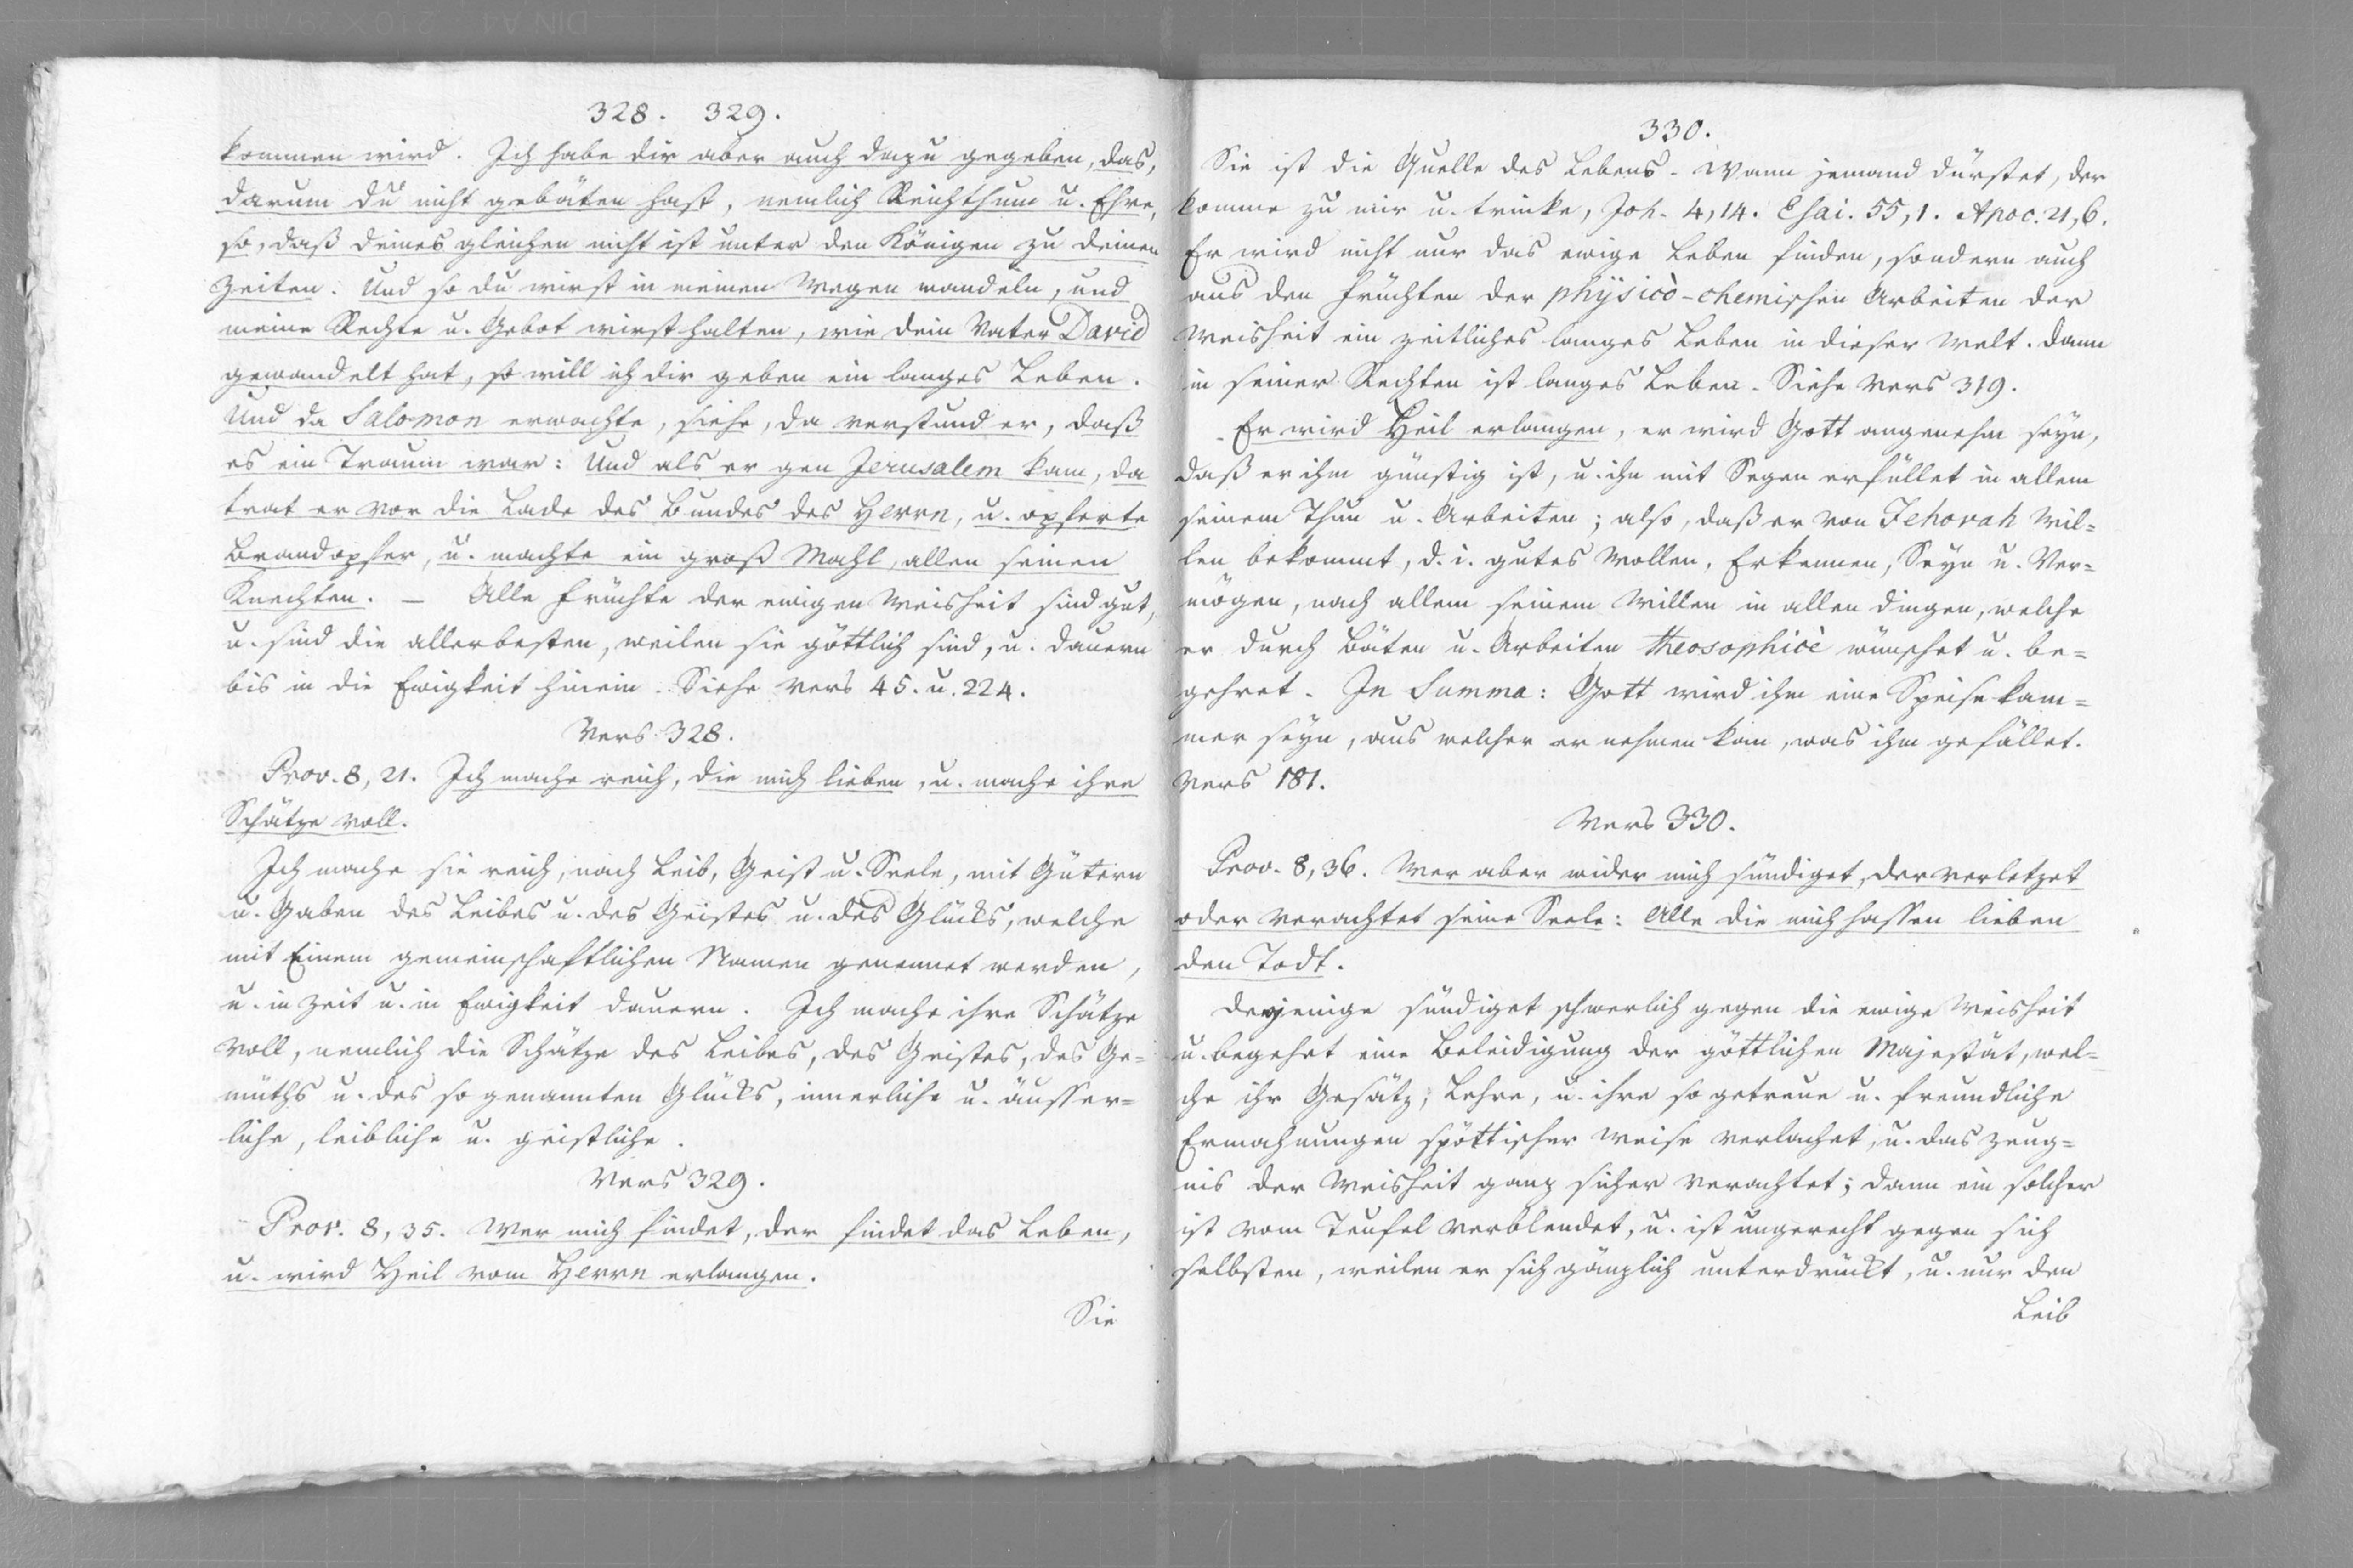 328. 329.
kommen wird. Ich habe dir aber auch dazu gegeben, das,
darum du nicht gebäten hast, nemlich Reichthum u. Ehre,
so, daß deines gleichen nicht ist unter den Königen zu deinen
Zeiten. Und so du wirst in meinen Wegen wandeln, und
meine Rechte u. Gebot wirst halten, wie dein Vater David
gewandelt hat, so will ich dir geben ein langes Leben.
Und da Salomon erwachte, siehe, da verstund er, daß
es ein Traum war: Und als er gen Jerusalem kam, da
trat er vor die Lade des Bundes des Herrn, u. opferte
Brandopfer, u. machte ein groß Mahl, allen seinen
Knechten. — Alle Früchte der ewigen Weisheit sind gut,
u. sind die allerbesten, weilen sie göttlich sind, u. dauern
bis in die Ewigkeit hinein. Siehe Vers 45. u. 224.
Vers 328.
Prov. 8, 21. Ich mache reich, die mich lieben, u. mache ihre
Schätze voll.
Ich mache sie reich, nach Leib, Geist u. Seele, mit Gütern
u. Gaben des Leibes u. des Geistes u. des Glücks, welche
mit Einem gemeinschaftlichen Namen genennet werden,
u. in Zeit u. in Ewigkeit dauern. Ich mache ihre Schätze
voll, nemlich die Schätze des Leibes, des Geistes, des Ge=
müths u. des so genannten Glücks, innerliche u. äusser=
liche, leibliche u. geistliche.
Vers 329.
Prov. 8, 35. Wer mich findet, der findet das Leben,
u. wird Heil vom Herrn erlangen.
Sie
330.
Sie ist die Quelle des Lebens. Wann jemand dürstet, der
komme zu mir u. trinke, Joh. 4, 14. Esai. 55, 1. Apoc. 21, 6.
Er wird nicht nur das ewige Leben finden, sondern auch
aus den Früchten der physicò-chemischen Arbeiten der
Weisheit ein zeitliches langes Leben in dieser Welt. Dann
in seiner Rechten ist langes Leben. Siehe Vers 319.
Er wird Heil erlangen, er wird Gott angenehm seyn,
daß er ihm günstig ist, u. ihn mit Segen erfüllet in allem
seinem Thun u. Arbeiten; also, daß er von Jehovah Wil=
len bekommt, d. i. gutes Wollen, Erkennen, Seyn u. Ver=
mögen, nach allem seinem Willen in allen Dingen, welche
er durch Bäten u. Arbeiten theosophicè wünschet u. be=
gehret. In Summa: Gott wird ihm eine Speisekam=
mer seyn, aus welcher er nehmen kan, was ihm gefället.
Vers 181.
Vers 330.
Prov. 8, 36. Wer aber wider mich sündiget, der verletzet
oder verachtet seine Seele: Alle die mich hassen lieben
den Todt.
Derjenige sündiget schwerlich gegen die ewige Weisheit
u. begehet eine Beleidigung der göttlichen Majestät, wel=
che ihr Gesätz, Lehre, u. ihre so getreue u. freundliche
Ermahnungen spöttischer Weise verlachet, u. das Zeug=
nis der Weisheit ganz sicher verachtet; dann ein solcher
ist vom Teufel verblendet, u. ist ungerecht gegen sich
selbsten, weilen er sich gänzlich unterdrückt, u. nur den
Leib